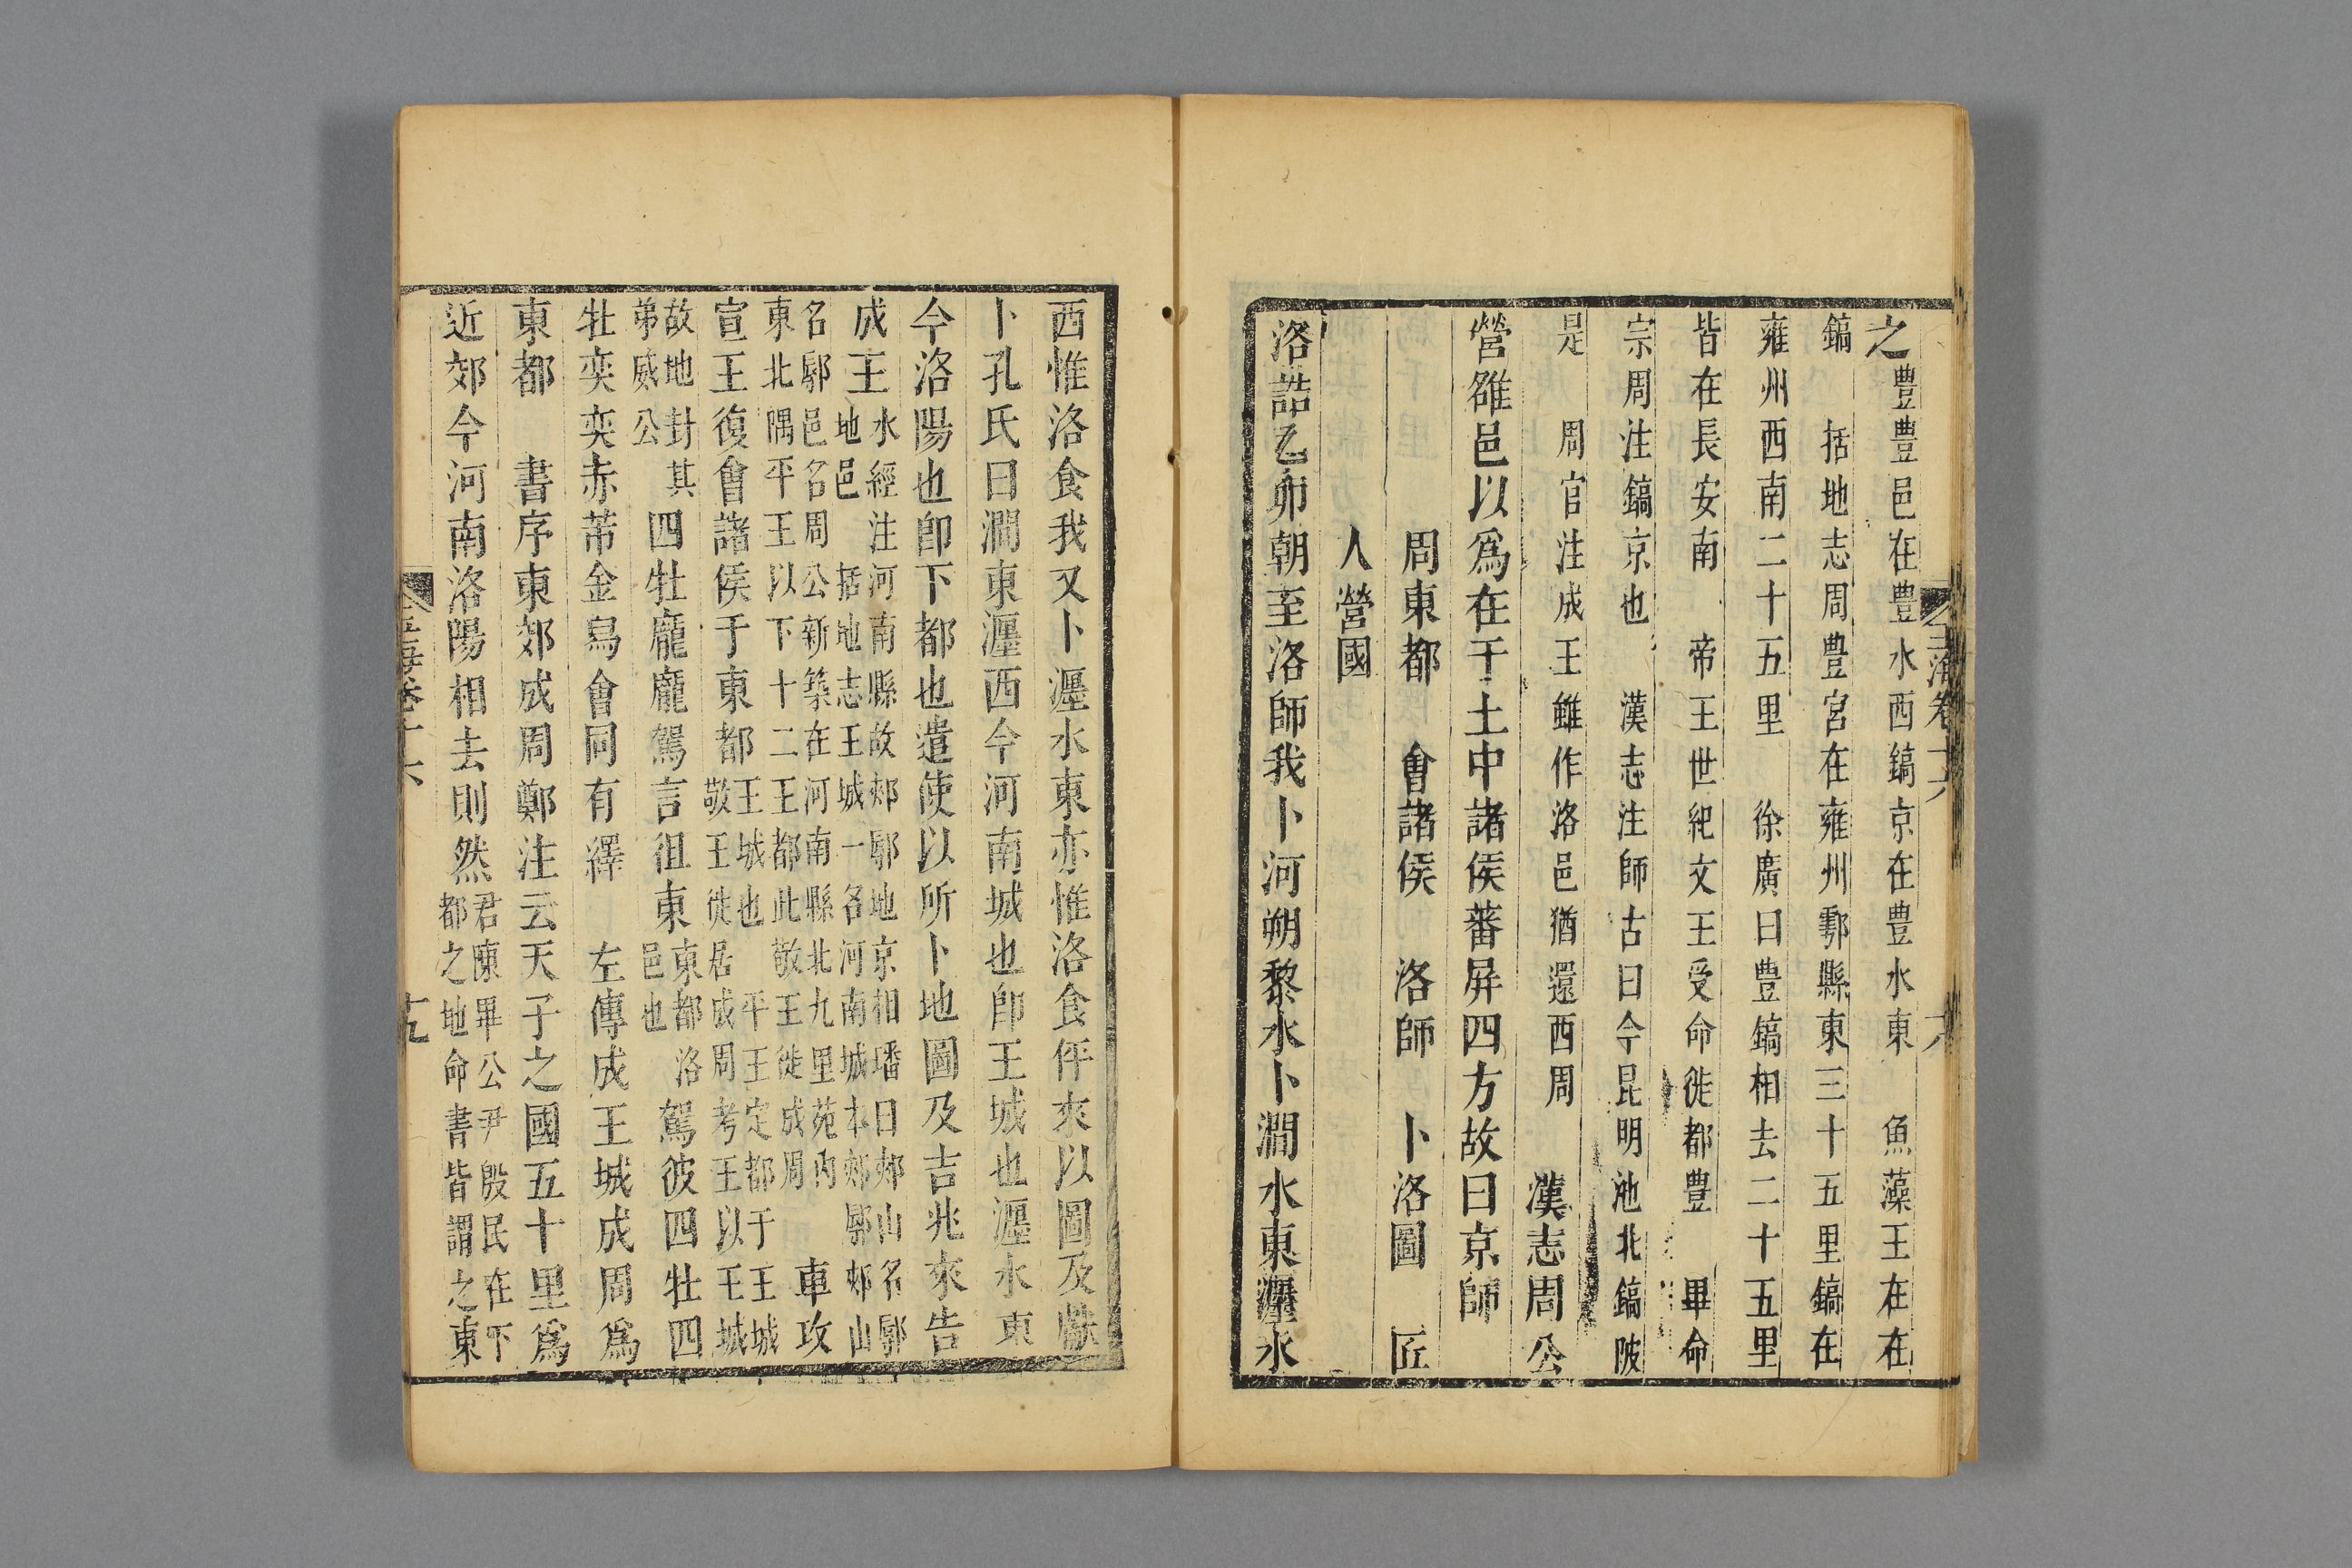 之豐豐邑在豐水西鎬京在豐水東　魚藻王在在
鎬　括地志周豐宮在雍州鄠縣東三十五里鎬在
雍州西南二十五里　徐廣曰豐鎬相去二十五里
皆在長安南　帝王世紀文王受命徙都豐　畢命
宗周注鎬京也　漢志注師古曰今昆明池北鎬陂
是　周官注成王雖作洛邑猶還西周　漢志周公
營雒邑以爲在于土中諸侯蕃屏四方故曰京師
周東都　會諸侯　洛師　卜洛圖　匠
人營國
洛誥乙卯朝至洛師我卜河朔黎水卜澗水東瀍水
西惟洛食我又卜瀍水東亦惟洛食伻來以圖及獻
卜孔氏曰澗東瀍西今河南城也卽王城也瀍水東
今洛陽也卽下都也遣使以所卜地圖及吉兆來告
成王
水經注河南縣故郟鄏地京相璠曰郟山名鄏
地邑　括地志王城一名河南城本郟鄏郟山
名鄏邑名周公新築在河南縣北九里苑內
東北隅平王以下十二王都此敬王徙成周
車攻
宣王復會諸侯于東都
王城也　平王定都于王城
敬王徙居成周考王以王城
故地封其
弟威公
四牡龐龐駕言徂東
東都
邑也
洛
駕彼四牡四
牡奕奕赤芾金舄會同有繹　左傳成王城成周爲
東都　書序東郊成周鄭注云天子之國五十里爲
近郊今河南洛陽相去則然
君陳畢公尹殷民在下
都之地命書皆謂之東